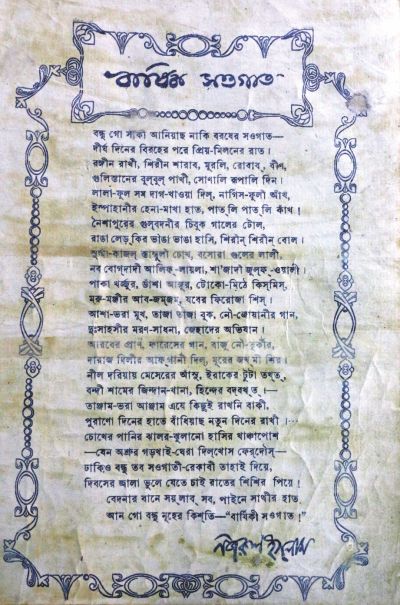 বার্ষিক সওগাত
বন্ধু গো সাকী আনিয়াছ নাকি বরষের সওগাত—
দীর্ঘ দিনের বিরহের পরে প্রিয়-মিলনের রাত।
রঙ্গীন রাখী, শিরীন শারাব, মুরলি, রোবাব্, বীণ,
গুলিস্তানের বুল্‌বুল্ পাখী, সোনালি রূপালি দিন।
লালা-ফুল সম দাগ-খাওয়া দিল্, নার্গিস-ফুলী আঁখ,
ইস্পাহানীর হেনা-মাখা হাত, পাত্‌লি পাত্‌লি কাঁখ!
নৈশাপুরের গুল্‌বদনীর চিবুক গালের টোল,
রাঙা লেড়্‌কির ভাঙা ভাঙা হাসি, শিরীন্ শিরীন্ বোল।
সুর্ম্মা-কাজল্ স্তাম্বুলী চোখ, বসোরা গুলের লালী,
নব বোগ্‌দাদী আলিফ্-লায়লা, শা'জাদী জুল্‌ফ্-ওয়ালী।
পাকা খর্জ্জুর, ডাঁশা আঙ্গুর, টোকো-মিঠে কিস্‌মিস্,
মরু-মঞ্জীর আব-জম্‌জম্, যবের ফিরোজা শিস্।
আশা-ভরা মুখ, তাজা তাজা বুক, নৌ-জোয়ানীর গান,
দুঃসাহসীর মরণ-সাধনা, জেহাদের অভিযান।
আরবের প্রাণ, ফারেসের গান, বাজু নৌ-তুর্কীর,
দারাজ দিলীর আফ্‌গানী দিল্, মূরের জখ্‌মী শির।
নীল দরিয়ায় মেসেরের আঁসু, ইরাকের টুটা তখ্‌ত্,
বন্দী শামের জিন্দান-খানা, হিন্দের বদবখ্‌ত্।—
তাঞ্জাম-ভরা আঞ্জাম এযে কিছুই রাখনি বাকী,
পুরাণো দিনের হাতে বাঁধিয়াছ নতুন দিনের রাখী।…
চোখের পানির ঝালর-ঝুলানো হাসির খাঞ্চাপোশ
—যেন অশ্রুর গড়খাই-ঘেরা দিল্‌খোস ফেরদৌস্—
ঢাকিও বন্ধু তব সওগাতী-রেকাবী তাহাই দিয়ে,
দিবসের জ্বালা ভুলে যেতে চাই রাতের শিশির পিয়ে!
বেদনার বানে সয়্‌লাব্ সব, পাইনে সাথীর হাত
আন গো বন্ধু নূহের কিশ্‌তি—“বার্ষিকী সওগাত!”
নজরুল ইসলাম